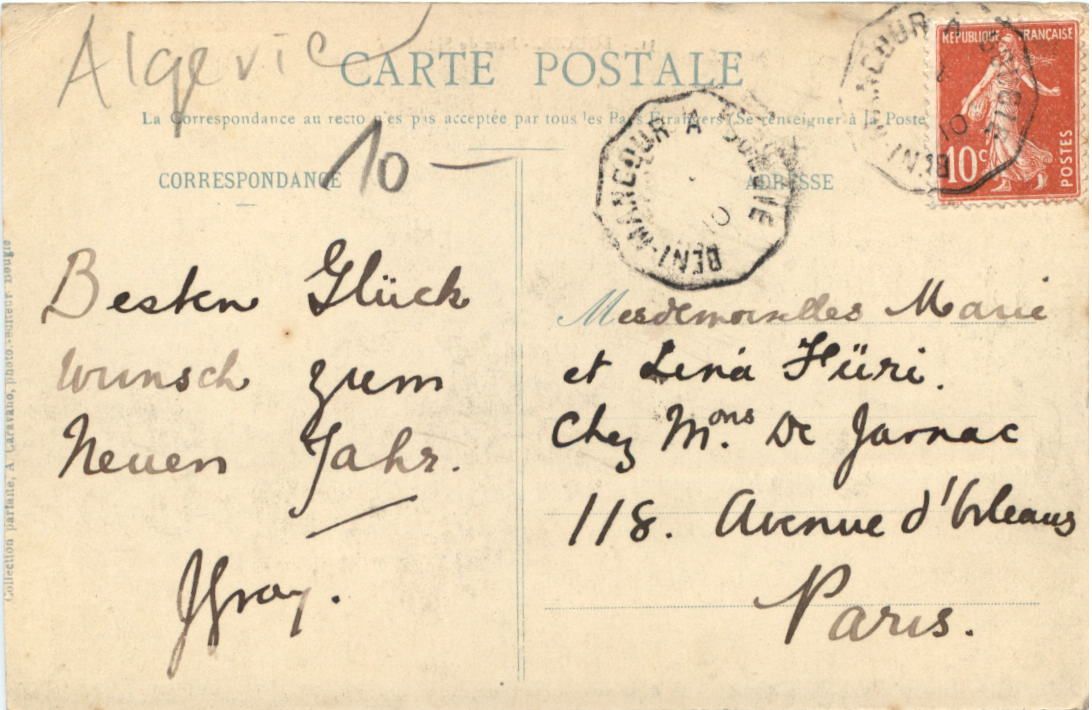 Algerie
CARTE POSTALE
La Correspondance au recto n'es pas acceptée par tous les Pays Etrangers (Se renseigner à la Poste
10 —
CORRESPONDANCE
ADRESSE
BENI-MANCOUR A BOUGIE
10
BENI-MANCOUR A BOUGIE
10
REPUBLIQUE FRANÇAISE
10c
POSTES
Besten Glück
wunsch zum
Neuen Jahr.
JGray.
Mesdemoiselles Marie
et Lina Hüri.
Chez Mons. De Jarnac
118. Avenue d'Orleans
Paris.
Collection parfaite, A. Caravano, photo.-éditeur Bougie